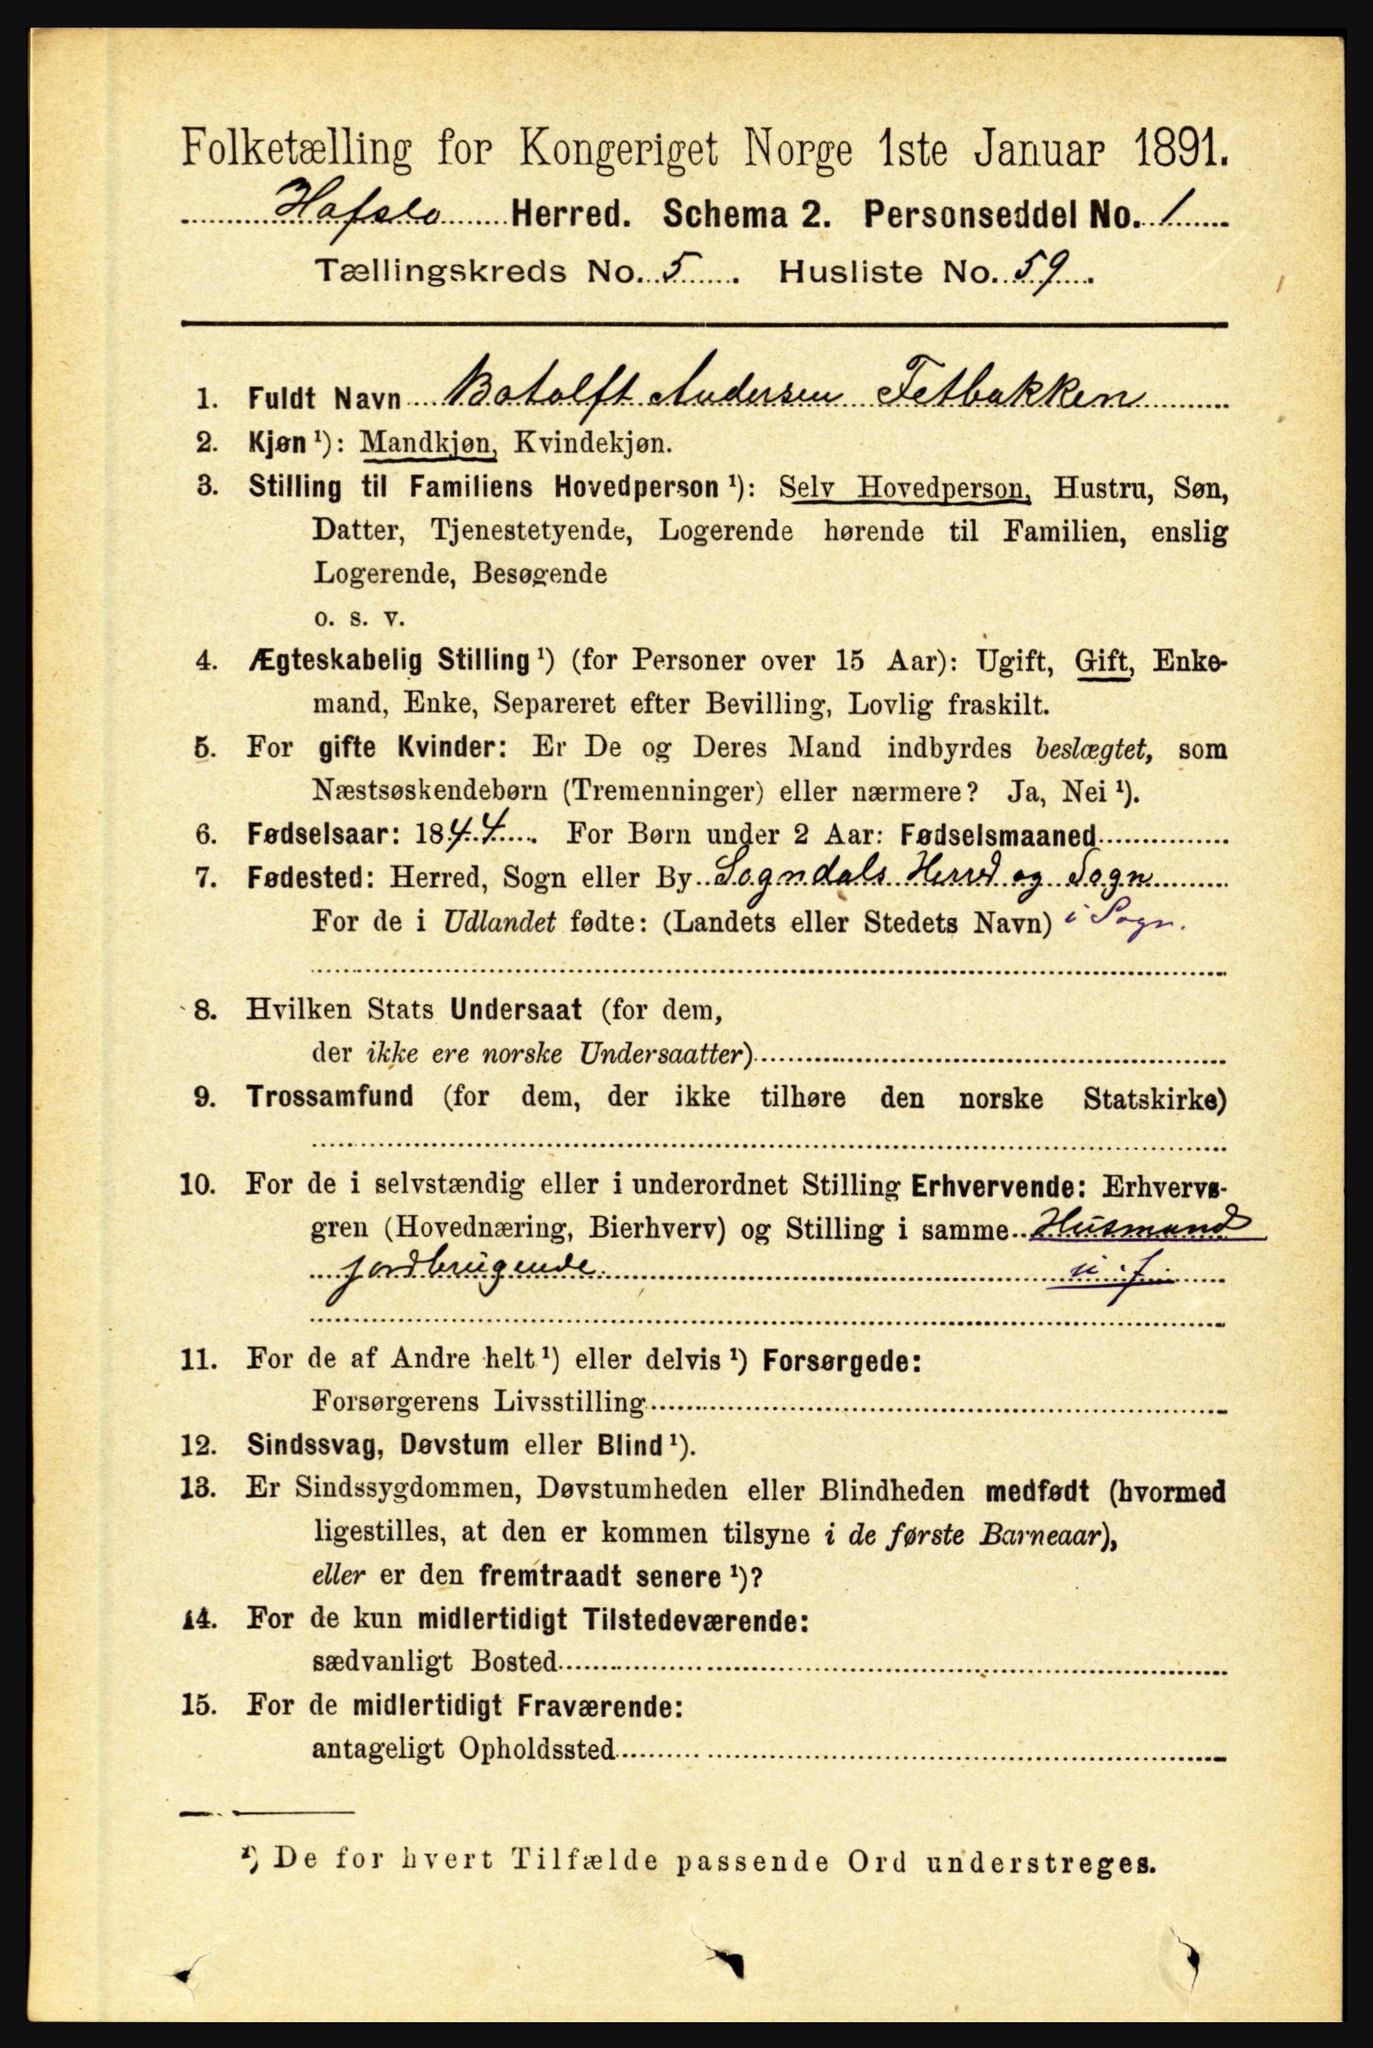 Folketælling for Kongeriget Norge 1ste Januar 1891.
Hafslo Herred. Schema 2. Personseddel No. 1
Tællingskreds No. 5. Husliste No. 59.
1. Fuldt Navn Botolft Andersen Fetbakken
2. Kjøn ¹): Mandkjøn, Kvindekjøn.
3. Stilling til Familiens Hovedperson ¹): Selv Hovedperson, Hustru, Søn,
Datter, Tjenestetyende, Logerende hørende til Familien, enslig
Logerende, Besøgende
o. s. v.
4. Ægteskabelig Stilling ¹) (for Personer over 15 Aar): Ugift, Gift, Enke-
mand, Enke, Separeret efter Bevilling, Lovlig fraskilt.
5. For gifte Kvinder: Er De og Deres Mand indbyrdes beslægtet, som
Næstsøskendebørn (Tremenninger) eller nærmere? Ja, Nei ¹).
6. Fødselsaar: 1844. For Børn under 2 Aar: Fødselsmaaned
7. Fødested: Herred, Sogn eller By Sogndals Herred og Sogn
For de i Udlandet fødte: (Landets eller Stedets Navn) i Sogn.
8. Hvilken Stats Undersaat (for dem,
der ikke ere norske Undersaatter)
9. Trossamfund (for dem, der ikke tilhøre den norske Statskirke)
10. For de i selvstændig eller i underordnet Stilling Erhvervende: Erhvervs-
gren (Hovednæring, Bierhverv) og Stilling i samme Husmand
jordbrugende. u. f.
11. For de af Andre helt ¹) eller delvis ¹) Forsørgede:
Forsørgerens Livsstilling
12. Sindssvag, Døvstum eller Blind ¹).
13. Er Sindssygdommen, Døvstumheden eller Blindheden medfødt (hvormed
ligestilles, at den er kommen tilsyne i de første Barneaar),
eller er den fremtraadt senere ¹)?
14. For de kun midlertidigt Tilstedeværende:
sædvanligt Bosted
15. For de midlertidigt Fraværende:
antageligt Opholdssted
¹) De for hvert Tilfælde passende Ord understreges.